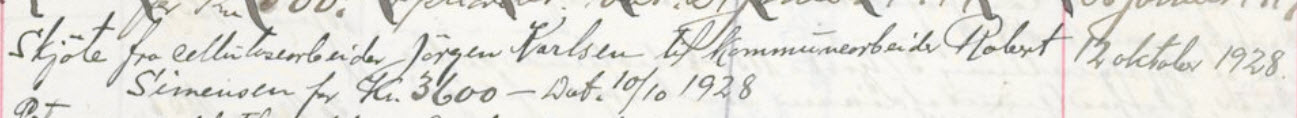 Skjöte fra cellulosearbeider Jörgen Karlsen til kommunearbeider Robert 12 oktober 1928.
Simensen for Kr. 3600 — Dat. 10/10 1928